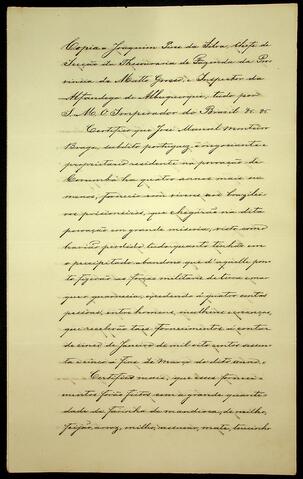 Copia = Joaquim Jose da Silva, Chefe de
Secção da Thesouraria de Fazenda da Pro-
vincia de Matto Grosso, e Inspector da
Alfandega de Albuquerque, tudo por
S. M. O Imperador do Brasil &c &c
Certifico que José Manoel Monteiro
Braga, subdito portuguez, é negociante e
proprietario residente na povoação de
Corumbá ha quatro annos mais ou
menos, forneceo com viveres aos brazilei-
ros prisioneiros, que chegarão na dita
povoação em grande miseria, visto como
havião perdido tudo quanto tinhão em
o precipitado abandono que d'aquelle pon-
to fizerão as forças militares de terra e mar
que o guarnecia, excedendo á quatro centas
pessoas, entre homens, mulheres e crianças,
que receberão taes fornecimentos á contar
de cinco de Janeiro de mil oito centos sessen-
ta e cinco á fins de Março do dito anno. =
Certifico mais, que esses forneci-
mentos forão feitos com a grande quanti-
dade de farinha de mandioca, de milho,
feijão, arroz, milho, assucar, mate, toucinho